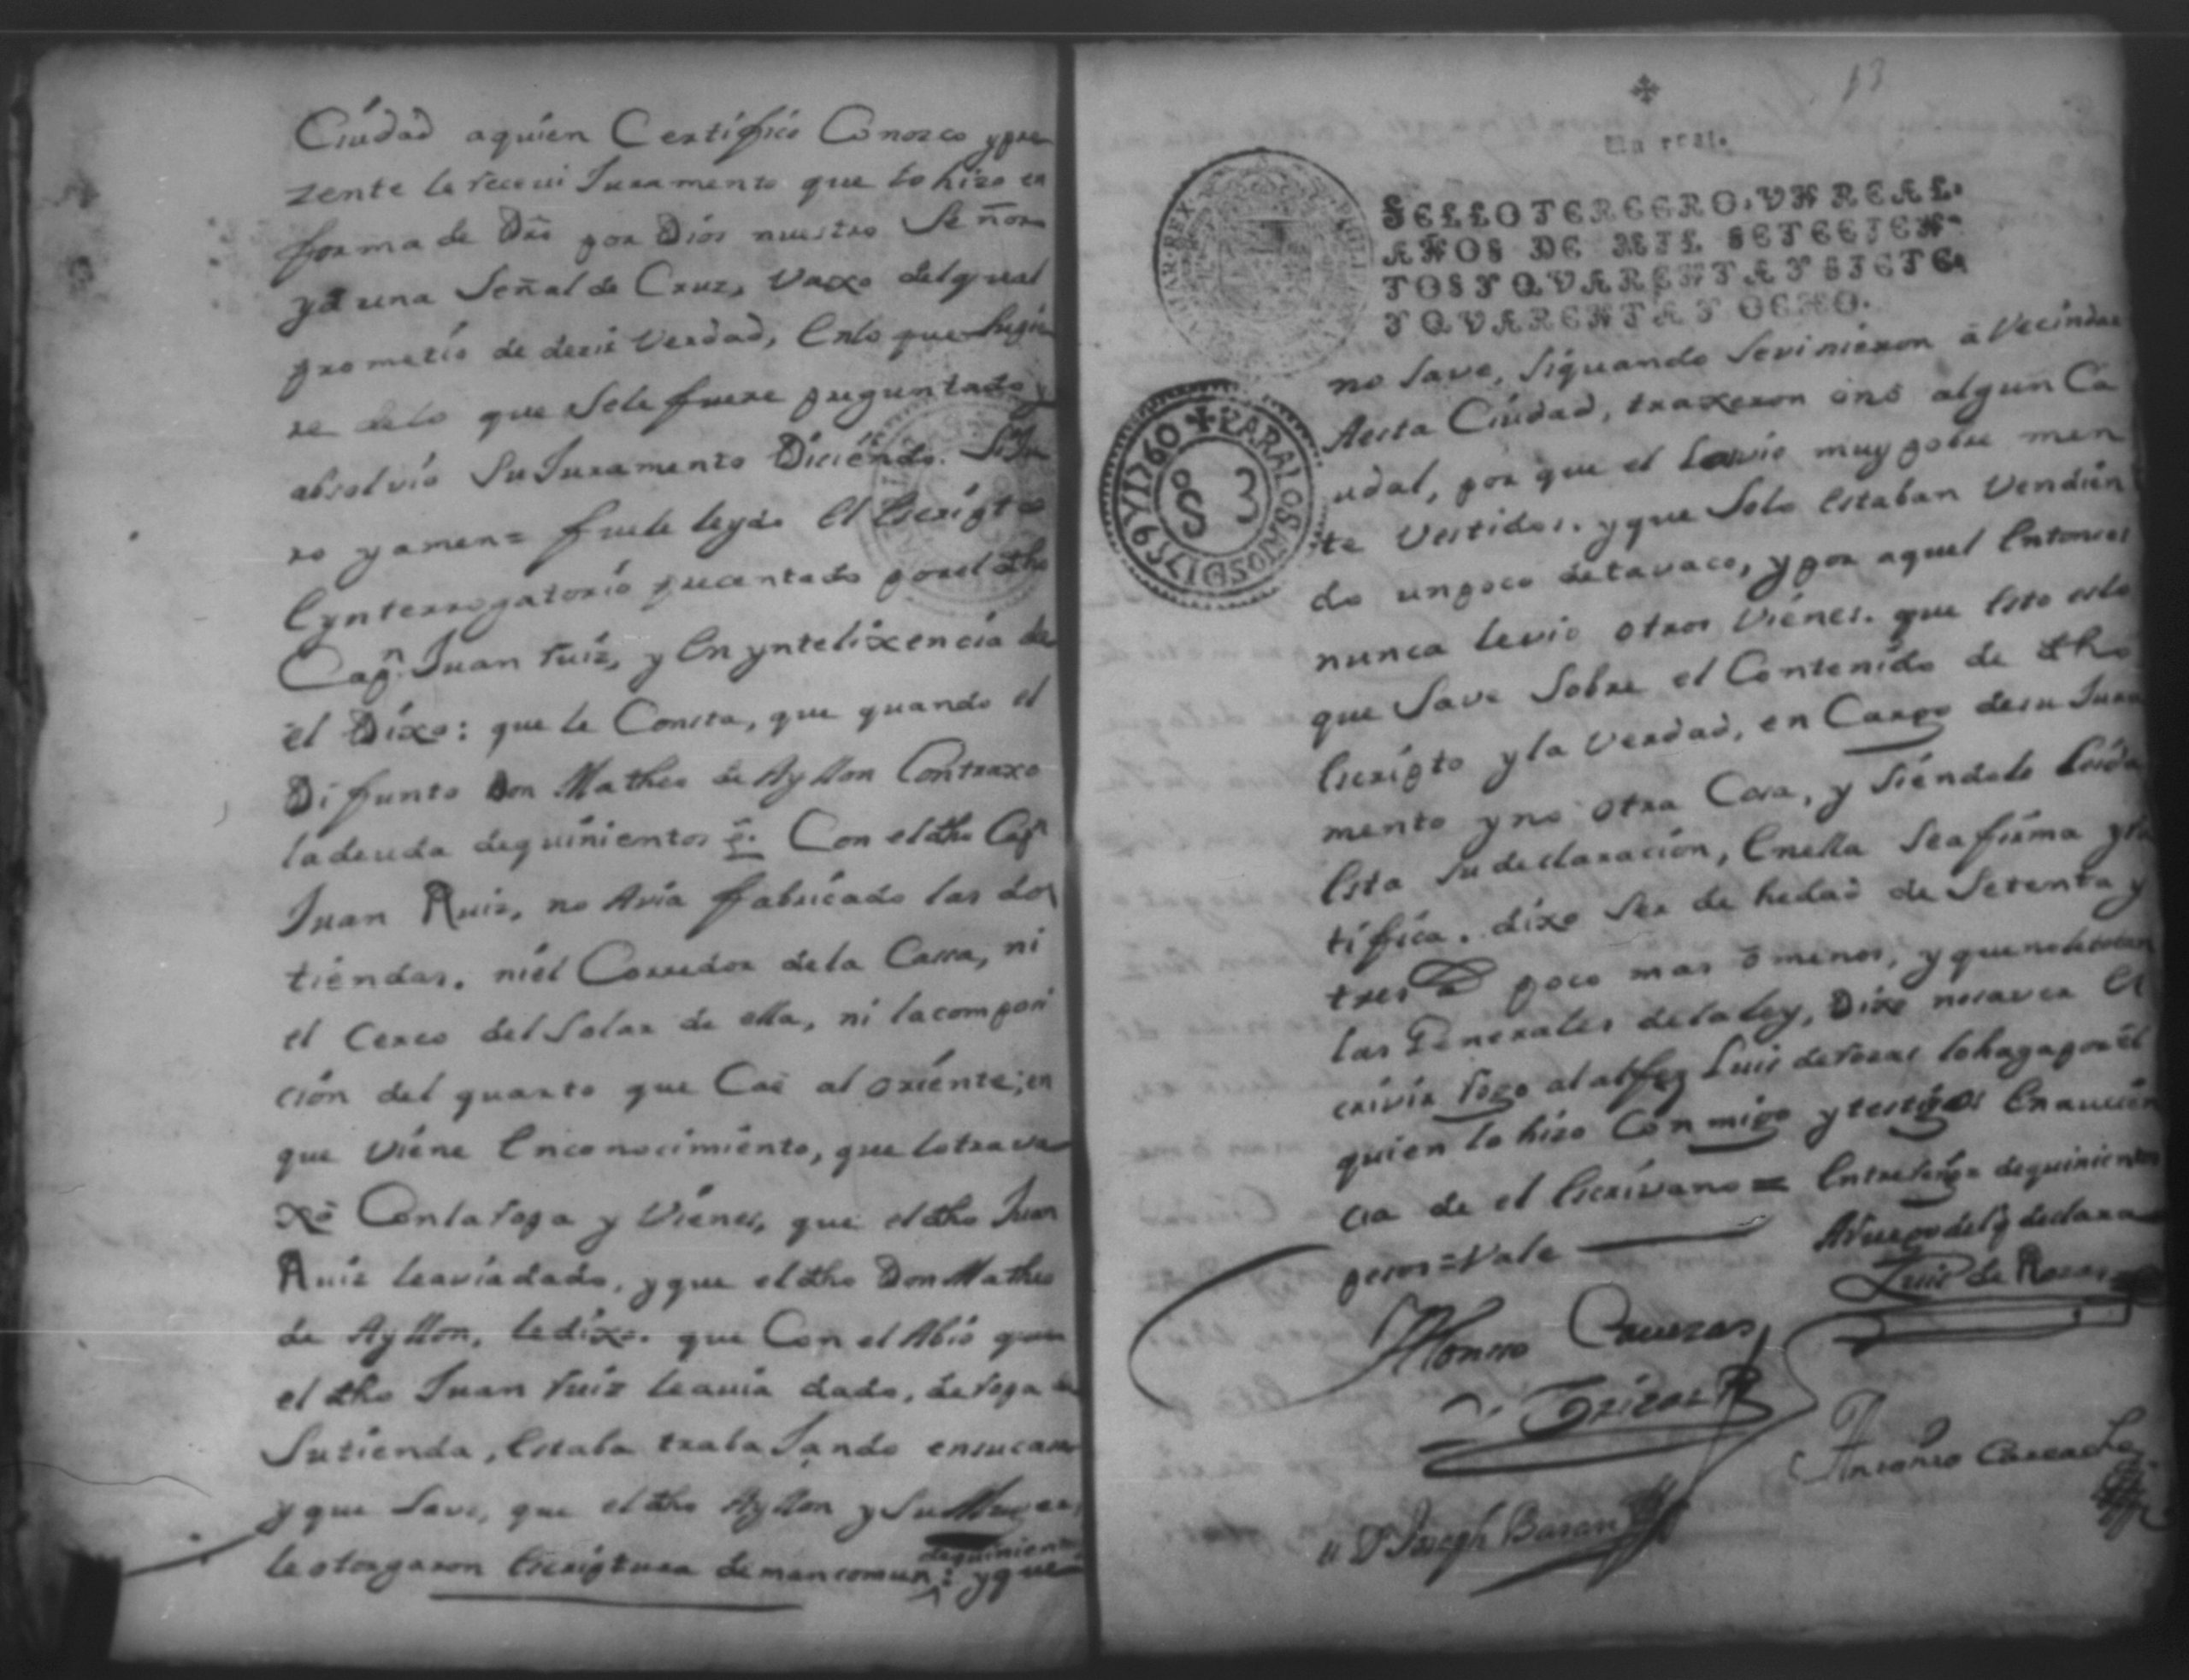 Ciudad aquien Certifico Conosco y pre
zente le receui Juramento que lo hizo en
forma de Dro por Dios nuestro Señor
ya una Señal de Cruz, vaxo del qual
prometio de desir Verdad, en lo que supie
re de lo que se le fuere preguntado y
absolvio su Juramento Diciendo. Si Ju
ro y amen = fuele leydo el escripto
e ynterrogatorio precentado por el dho
Capn. Juan ruiz, y en yntelixencia de
el Dixo: que le Consta, que quando el
Difunto Don Matheo de Ayllon Contraxo
la deuda de quinientos ps. Con el dho Capn
Juan Ruiz, no Avia fabricado las dos
tiendas, ni el Corredor de la Cassa, ni
el Cerco del Solar de ella, ni la compoci
cion del quarto que Cae al oriente; en
que viene en conocimiento, que lo trava
xo Con la ropa y Vienes, que el dho Juan
Ruiz le avia dado, y que el dho Don Matheo
de Ayllon, le dixo. que Con el Abio que
el dho Juan ruiz le auia dado, de ropa de
Su tienda, estaba trabajando en su casa
y que Save, que el dho Ayllon y Su Muger
de quinientos
le otorgaron escriptura de mancomun; y que
13
Un real.
SELLO TERCERO, VN REAL.
AÑOS DE MIL SETECIEN-
TOS Y QVARENTA Y SIETE,
Y QVARENTA Y OCHO.
PARA LOS AÑOS D 1759 Y 1760
S 3
no Save, si quando se vinieron a Vecindar
A esta Ciudad, traxeron o no algun Ca
udal, por que el los vio muy pobre men
te vestidos. y que Solo estaban Vendien
do un poco de tavaco, y por aquel entonces
nunca le vio otros Vienes. que esto es lo
que Save Sobre el Contenido de dho
escripto y la Verdad, en Cargo de su Jura
mento y no otra Cosa, y siendole leida
esta su declaracion, en ella se afirma y ra
tifica. dixo ser de hedad de Setenta y
tres as poco mas o menos, y que no le tocan
las Generales de la ley, Dixo no saver es
crivir rogo al alfez Luis de rosas lo haga por el
quien lo hizo Con migo y testigos en aucen
cia de el escrivano = Entre renges de quinientos
pesos = Vale
A ruego del q declara
Luis de Rosas
Alonsso
Antonio
D Joseph